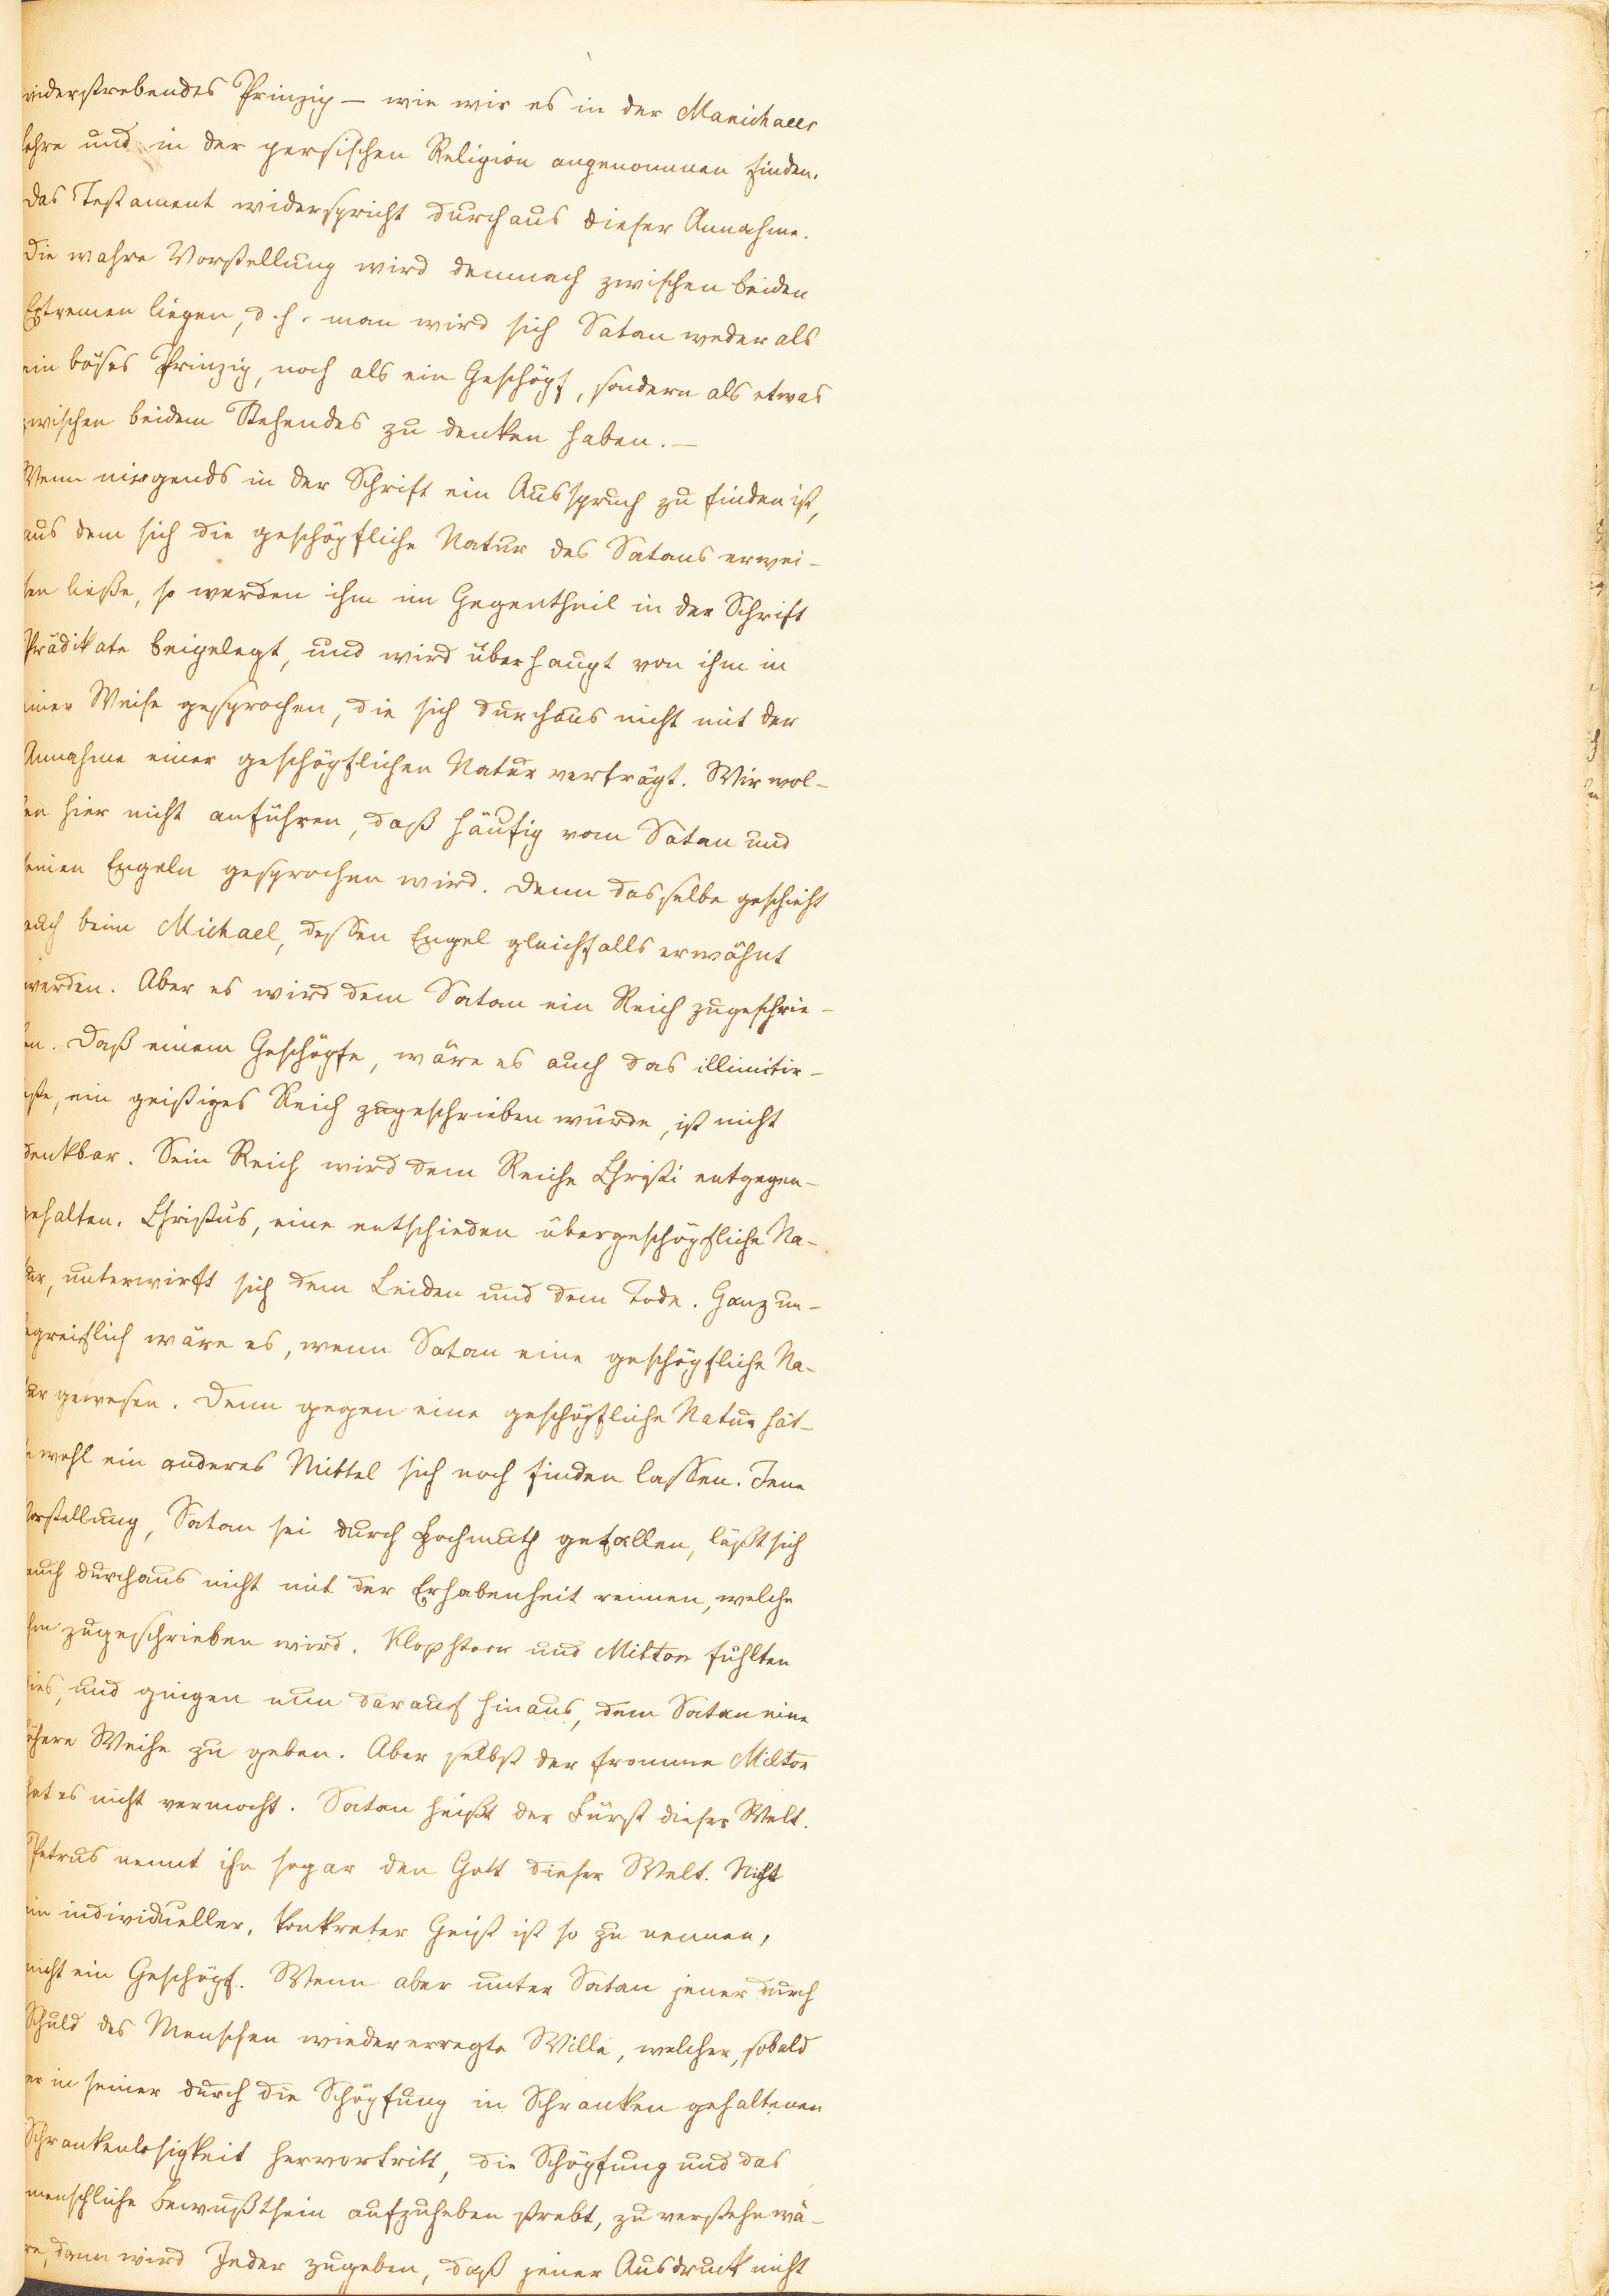 widerstrebendes Prinzip – wie wir es in der Manichaeer
lehre und in der persischen Religion angenommen finden.
Das Testament widerspricht durchaus dieser Annahme.
Die wahre Vorstellung wird demnach zwischen beiden
Extremen liegen, d. h. man wird sich Satan weder als
ein böses Prinzip, noch als ein Geschöpf, sondern als etwas
zwischen beidem Stehendes zu denken haben. –
Wenn nirgends in der Schrift ein Ausspruch zu finden ist,
aus dem sich die geschöpfliche Natur des Satans erwei-
sen ließe, so werden ihm im Gegentheil in der Schrift
Prädikate beigelegt, und wird überhaupt von ihm in
einer Weise gesprochen, die sich durchaus nicht mit der
Annahme einer geschöpflichen Natur verträgt. Wir wol-
len hier nicht anführen, daß häufig vom Satan und
seinen Engeln gesprochen wird. Denn dasselbe geschieht
auch beim Michael, dessen Engel gleichfalls erwähnt
werden. Aber es wird dem Satan ein Reich zugeschrie-
ben. Daß einem Geschöpfe, wäre es auch das illimitir-
teste, ein geistiges Reich zugeschrieben würde, ist nicht
denkbar. Sein Reich wird dem Reiche Christi entgegen-
gehalten. Christus, eine entschieden übergeschöpfliche Na-
tur, unterwirft sich dem Leiden und dem Tode. Ganz un-
begreiflich wäre es, wenn Satan eine geschöpfliche Na-
tur gewesen. Denn gegen eine geschöpfliche Natur hät-
te wohl ein anderes Mittel sich noch finden lassen. Jene
Vorstellung, Satan sei durch Hochmuth gefallen, läßt sich
auch durchaus nicht mit der Erhabenheit reimen, welche
ihm zugeschrieben wird. Klopstock und Milton fühlten
dies, und gingen nun darauf hinaus, dem Satan eine
höhere Weihe zu geben. Aber selbst der fromme Milton
hat es nicht vermocht. Satan heißt der Fürst dieser Welt.
Petrus nennt ihn sogar den Gott dieser Welt. Nicht
ein individueller, konkreter Geist ist so zu nennen,
nicht ein Geschöpf. Wenn aber unter Satan jener durch
Schuld des Menschen wiedererregte Wille, welcher, sobald
er in seiner durch die Schöpfung in Schranken gehaltenen
Schrankenlosigkeit hervortritt, die Schöpfung und das
menschliche Bewußtsein aufzuheben strebt, zu verstehn wä-
re, dann wird Jeder zugeben, daß jener Ausdruck nicht